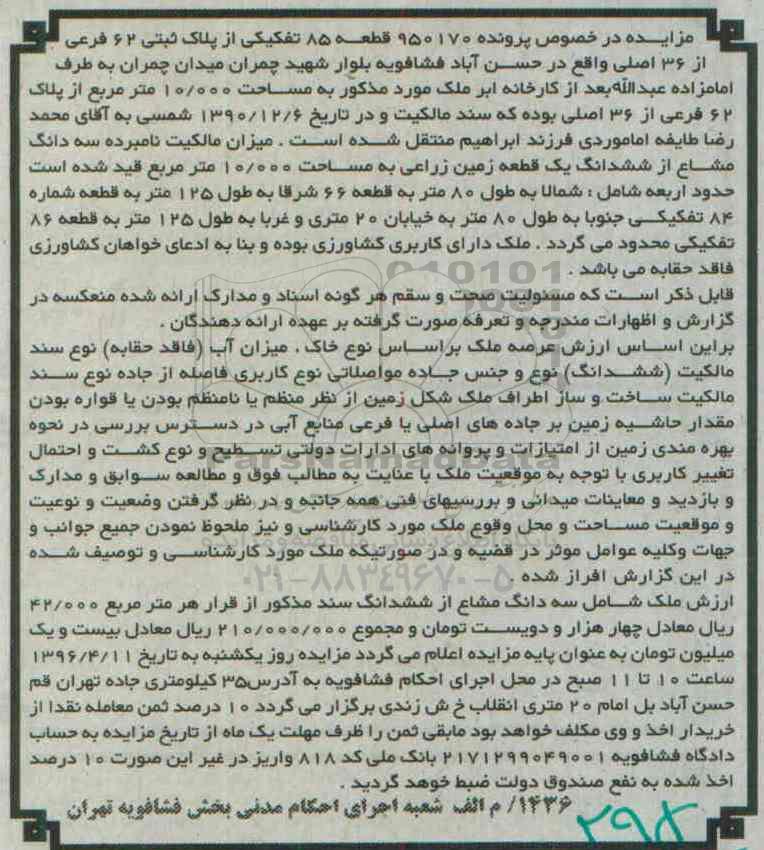 مزایـــده در خصوص پرونده ۹۵۰۱۷۰ قطعـــه ۸۵ تفکیکی از پلاک ثبتی ۶۲ فرعی
از ۳۶ اصلی واقع در حســـن آباد فشافویه بلوار شهید چمران میدان چمران به طرف
امامزاده عبداللّه بعد از کارخانه ابر ملک مورد مذکور به مساحت ۱۰/۰۰۰ متر مربع از پلاک
۶۲ فرعی از ۳۶ اصلی بوده که سند مالکیت و در تاریخ ۱۳۹۰/۱۲/۶ شمسی به آقای محمد
رضا طایفه اماموردی فرزند ابراهیم منتقل شـــده است . میزان مالکیت نامبرده سه دانگ
مشـــاع از ششدانگ یک قطعه زمین زراعی به مســـاحت ۱۰/۰۰۰ متر مربع قید شده است
حدود اربعه شامل : شمالا به طول ۸۰ متر به قطعه ۶۶ شرقا به طول ۱۲۵ متر به قطعه شماره
۸۴ تفکیکـــی جنوبا به طول ۸۰ متر به خیابان ۲۰ متری و غربا به طول ۱۲۵ متر به قطعه ۸۶
تفکیکی محدود می گردد . ملک دارای کاربری کشاورزی بوده و بنا به ادعای خواهان کشاورزی
فاقد حقابه می باشد .
قابل ذکر اســـت که مسئولیت صحت و سقم هر گونه اسناد و مدارک ارائه شده منعکسه در
گزارش و اظهارات مندرجه و تعرفه صورت گرفته بر عهده ارائه دهندگان .
براین اســـاس ارزش عرصه ملک براســـاس نوع خاک ، میزان آب (فاقد حقابه) نوع سند
مالکیت (ششـــدانگ) نوع و جنس جـــاده مواصلاتی نوع کاربری فاصله از جاده نوع ســـند
مالکیت ســـاخت و ساز اطراف ملک شکل زمین از نظر منظم یا نامنظم بودن یا قواره بودن
مقدار حاشـــیه زمین بر جاده های اصلی یا فرعی منابع آبی در دســـترس بررسی در نحوه
بهره مندی زمین از امتیازات و پروانه های ادارات دولتی تســـطیح و نوع کشـــت و احتمال
تغییر کاربری با توجه به موقعیت ملک با عنایت به مطالب فوق و مطالعه ســـوابق و مدارک
و بازدید و معاینات میدانی و بررسیهای فنی همه جانبه و در نظر گرفتن وضعیت و نوعیت
و موقعیت مســـاحت و محل وقوع ملک مورد کارشناسی و نیز ملحوظ نمودن جمیع جوانب و
جهات وکلیه عوامل موثر در قضیه و در صورتیکه ملک مورد کارشناســـی و توصیف شـــده
در این گزارش افراز شده .
ارزش ملک شـــامل سه دانگ مشاع از ششدانگ سند مذکور از قرار هر متر مربع ۴۲/۰۰۰
ریال معادل چهار هزار و دویســـت تومان و مجموع ۲۱۰/۰۰۰/۰۰۰ ریال معادل بیست و یک
میلیون تومان به عنوان پایه مزایده اعلام می گردد مزایده روز یکشنبه به تاریخ ۱۳۹۶/۴/۱۱
ساعت ۱۰ تا ۱۱ صبح در محل اجرای احکام فشافویه به آدرس ۳۵ کیلومتری جاده تهران قم
حسن آباد بل امام ۲۰ متری انقلاب خ ش زندی برگزار می گردد ۱۰ درصد ثمن معامله نقدا از
خریدار اخذ و وی مکلف خواهد بود مابقی ثمن را ظرف مهلت یک ماه از تاریخ مزایده به حساب
دادگاه فشافویه ۲۱۷۱۲۹۹۰۴۹۰۰۱ بانک ملی کد ۸۱۸ واریز در غیر این صورت ۱۰ درصد
اخذ شده به نفع صندوق دولت ضبط خواهد گردید .
۱۴۳۶/ م الف شعبه اجرای احکام مدنی بخش فشافویه تهران
ParsNamadData
۰۲۱-۸۸۳۴۹۶۷۰-۵